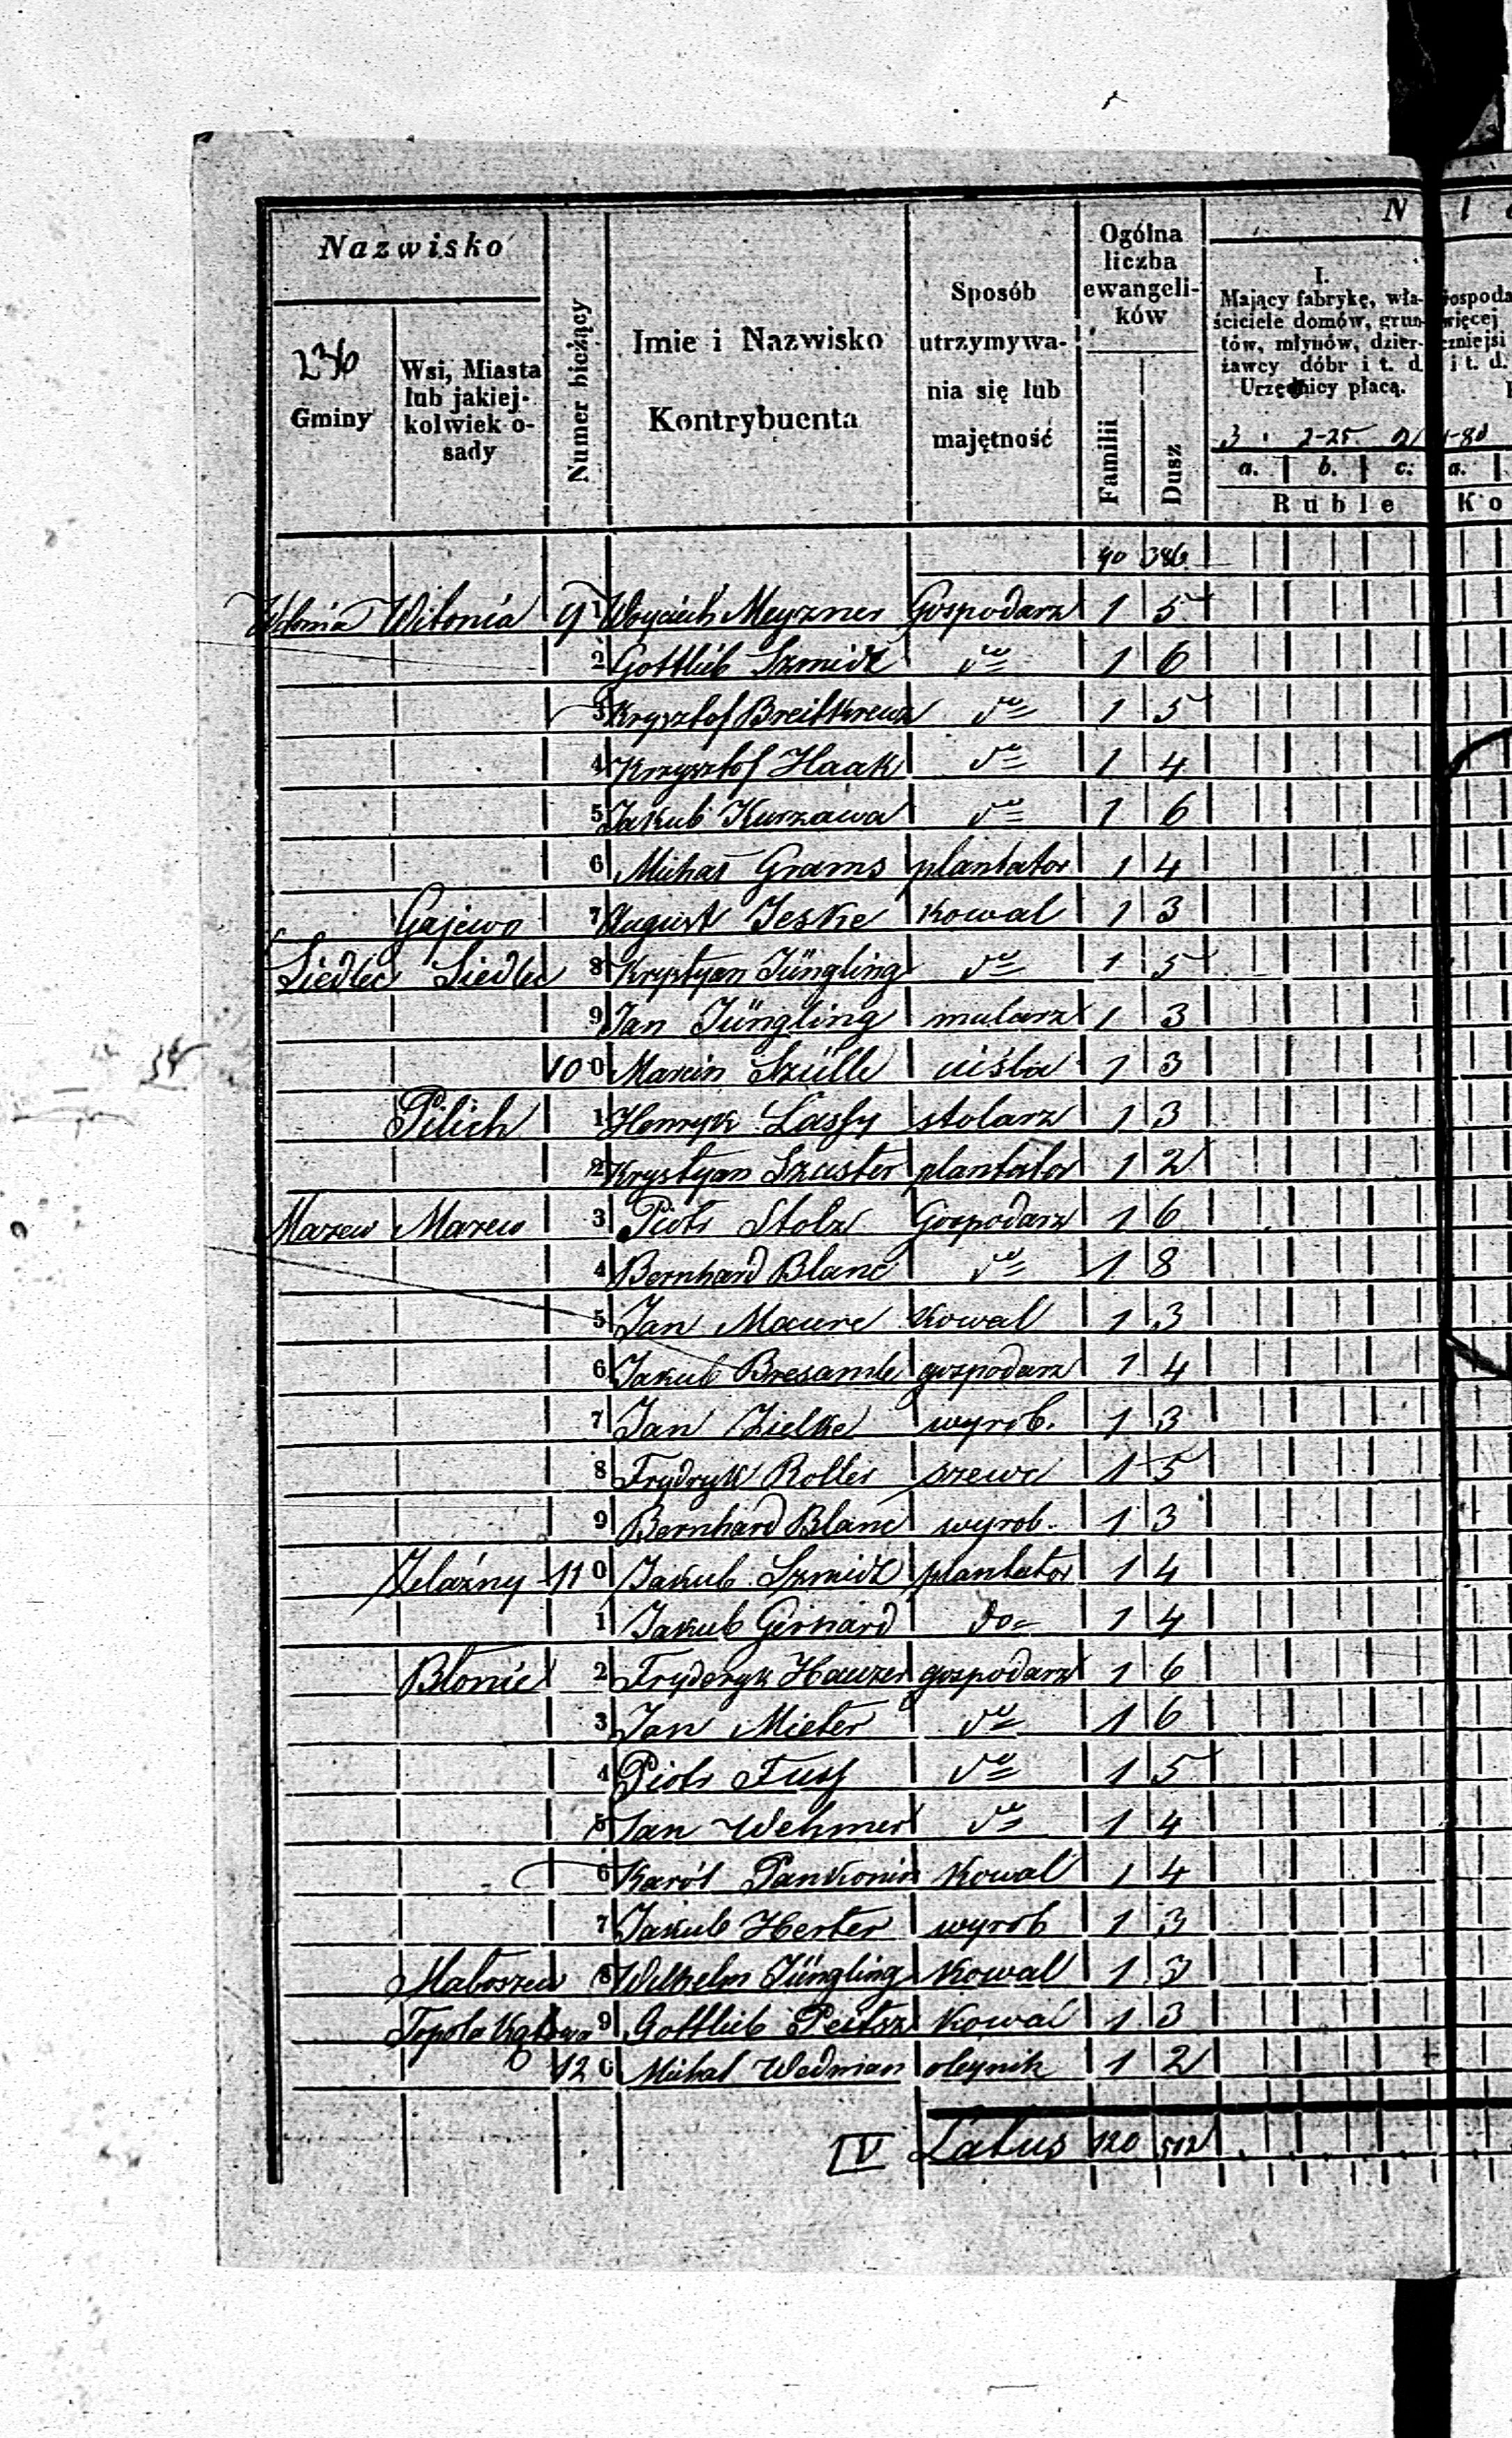 N i
Nazwisko
236
Gminy
Wsi, Miasta lub jakiej-kolwiek o-sady
Numer bieżący
Imie i Nazwisko Kontrybuenta
Sposób utrzymywa-nia się lub majętność
Ogólna liczba ewangeli-ków
Familii
Dusz
I.
Mający fabrykę, wła-
ściciele domów, grun-
tów, młynów, dzier-
żawcy dóbr i t. d.
Urzędnicy płacą.
3 2-25
a. b. c. a.
Ruble Ko
90 386
Witonia Witonia 9 1 Woyciech Meyzner Gospodarz 1 5
2 Gottlieb Szmidt do 1 6
3 Krysztof Breitkreuz do 1 5
4 Krzysztof Haak do 1 4
5 Jakub Kurzawa do 1 6
6 Michał Grams plantator 1 4
Gajewo 7 August Jeske Kowal 1 3
Siedlec Siedlec 8 Krystyan Jüngling do 1 5
9 Jan Jüngling mularz 1 3
10 0 Marcin Szülle cieśla 1 3
Pilich 1 Henryk Lassy stolarz 1 3
2 Krystyan Szuster plantator 1 2
Mazew Mazew 3 Piotr Stolz Gospodarz 1 6
4 Bernhard Blanc do 1 8
5 Jan Maure Kowal 1 3
6 Jakub gospodarz 1 4
7 Jan Zielke wyrob. 1 3
8 Frydryk Roller szewc 1 5
9 Bernhard Blanc wyrob. 1 3
Żelazny 11 0 Jakub Szmidt plantator 1 4
1 Jakub Gerhard do 1 4
Błonie 2 Fryderyk Hauzer gospodarz 1 6
3 Jan Mieter do 1 6
4 Piotr Fuss do 1 5
5 Jan Wehmer do 1 4
6 Karól Pankonin Kowal 1 4
7 Jakub Herter wyrob 1 3
8 Wilhelm Jüngling Kowal 1 3
Topola Kątowa 9 Gottlieb Peitsz Kowal 1 3
12 0 Michał Wedman oleynik 1 2
IV Latus 120 512